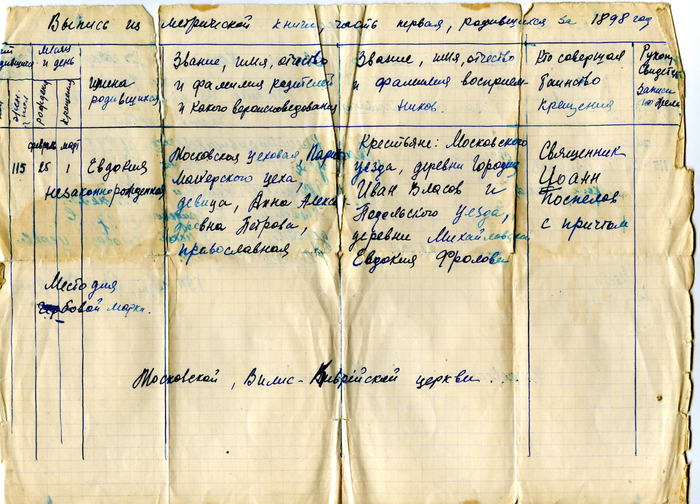 Выпись из метрической книги, часть первая, родившихся за 1898 год
месяц и день
рождения
крещения
Имена родившихся
Звание, имя, отчество
и фамилия родителей
и какого вероисповедования
Звание, имя, отчество
и фамилия восприем
ников.
Кто совершал
таинство
крещения
Рукопр
Свидет
записи
февраль март
115 25 1 Евдокия
незаконнорожденная
Московская цеховая,
цеха,
девица, Анна Алекса
дровна Петрова,
православная
Крестьяне: Московского
уезда, деревни
Иван Власов и
Подольского уезда,
деревни Михайловской
Евдокия Фролова
Священник
Иоанн
Поспелов
с причтом
Место для
гербовой марки.
Московской, церкви...